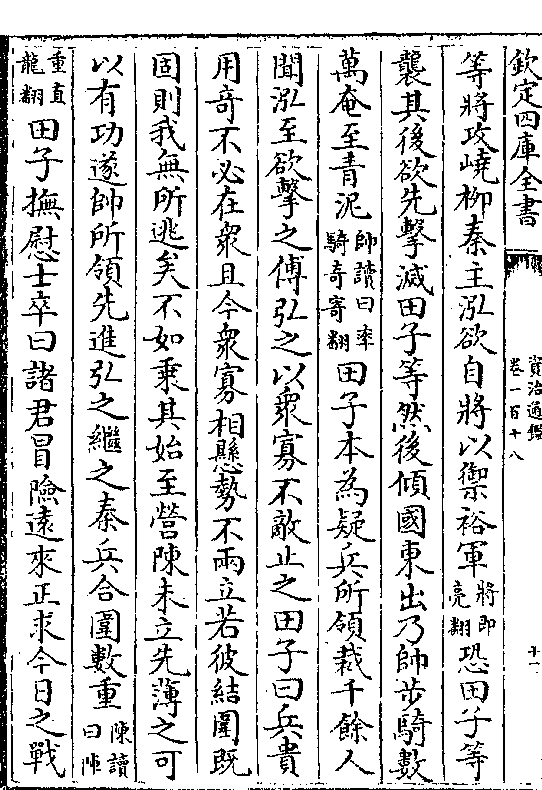 欽定四庫全書
資治通鑑
卷一百十八
十一
等將攻嶢柳秦主泓欲自將以禦裕軍將即亮翻恐田子等
襲其後欲先擊滅田子等然後傾國東出乃帥步騎數
萬奄至青泥帥讀曰率騎奇寄翻田子本為疑兵所領裁千餘人
聞泓至欲擊之傅弘之以衆寡不敵止之田子曰兵貴
用奇不必在衆且今衆寡相懸勢不兩立若彼結圍既
固則我無所逃矣不如乘其始至營陳未立先薄之可
以有功遂帥所領先進弘之繼之秦兵合圍數重陳讀曰陣
重直龍翻田子撫慰士卒曰諸君冒險遠來正求今日之戰